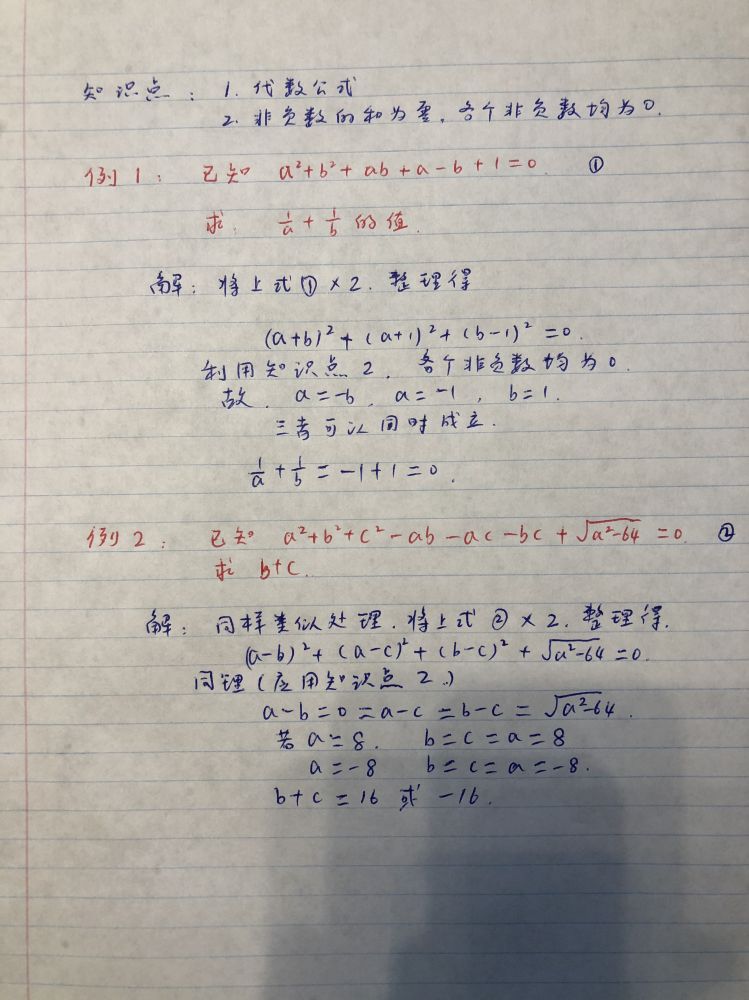 知识点: 1. 代数公式
2. 非负数的和为零, 各个非负数均为0.
例1: 已知 a²+b²+ab+a-b+1=0. ①
求: 1/a + 1/b 的值.
解: 将上式①×2. 整理得
(a+b)²+(a+1)²+(b-1)²=0.
利用知识点2, 各个非负数均为0.
故. a=-b, a=-1, b=1.
三者可以同时成立.
1/a + 1/b = -1+1=0.
例2: 已知 a²+b²+c²-ab-ac-bc+√(a²-64)=0. ②
求 b+c.
解: 同样类似处理. 将上式②×2. 整理得.
(a-b)²+(a-c)²+(b-c)²+√(a²-64)=0.
同理(应用知识点2.)
a-b=0=a-c=b-c=√(a²-64).
若 a=8. b=c=a=8
a=-8 b=c=a=-8.
b+c=16 或 -16.